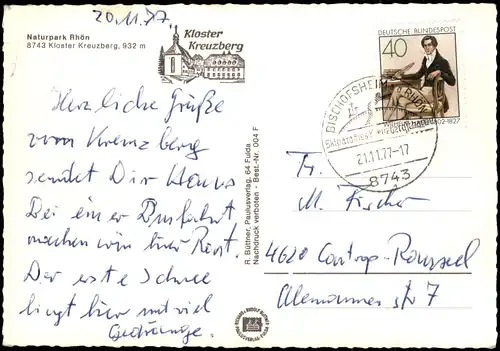 20.11.77.
Naturpark Rhön
8743 Kloster Kreuzberg, 932 m
Kloster
Kreuzberg
DEUTSCHE BUNDESPOST
40
1802-1827
BISCHOFSHEIM
21.11.77-17
8743
Herzliche Grüße
vom Kreuzberg
sendet Dir Klaus
Bei einer Busfahrt
machen wir hier Rast.
Der erste Schnee
liegt hier mit viel
Gedränge.
R. Büttner, Paulusverlag, 64 Fulda
Nachdruck verboten - Best.-Nr. 004 F
Fr.
M. Fischer
4620 Castrop-Rauxel
Alemannenstr 7